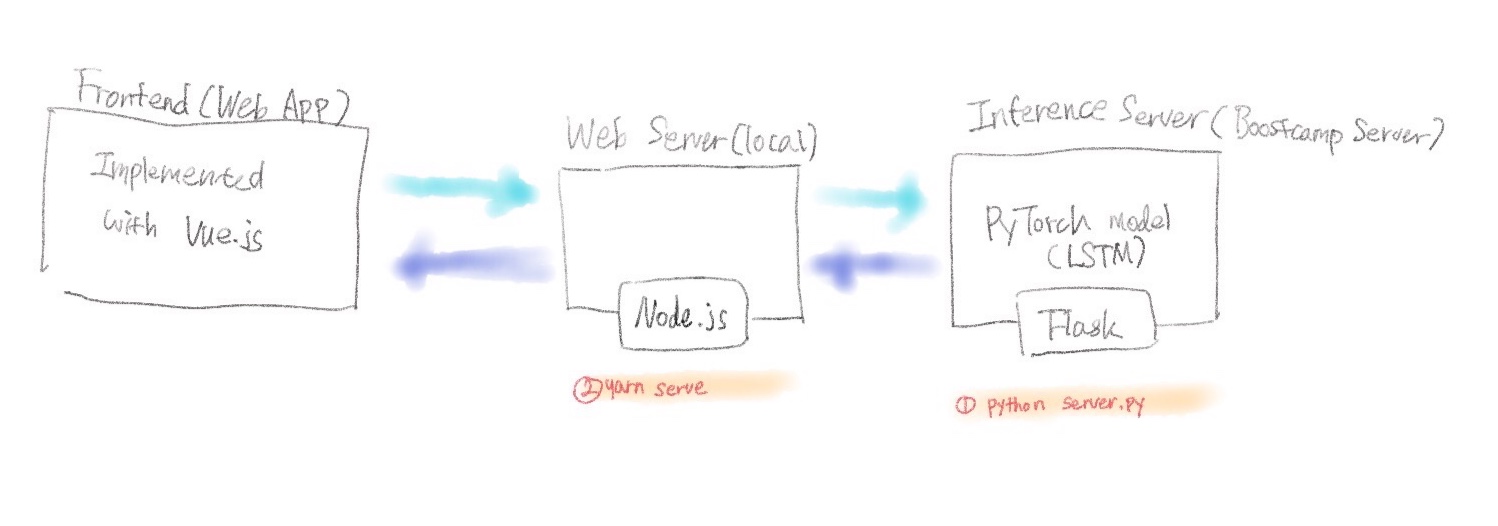 Frontend (Web App)
Implemented
with Vue.js
Web Server (local)
Node.js
② yarn serve
Inference Server (Boostcamp Server)
PyTorch model
(LSTM)
Flask
① python server.py